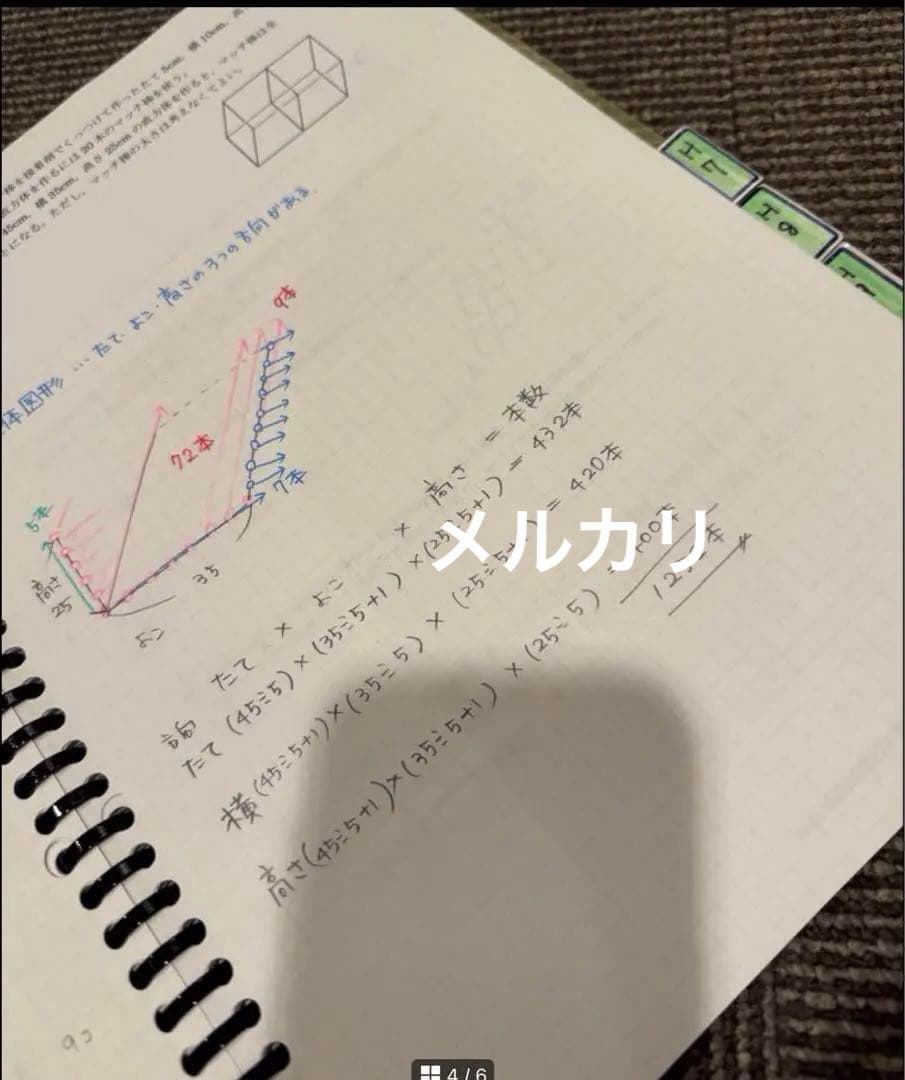 棒を接着剤でくっつけて作ったたて5cm、横10cm、高
直方体を作るには20本のマッチ棒を使う。
45cm、横35cm、高さ25cmの直方体を作ると、マッチ棒は全
になる。ただし、マッチ棒の太さは考えなくてよい。
体図形 … たて、よこ、高さの3つの方向がある。
9本
72本
7本
5本
高さ
25
35
よこ
たて × よこ × 高さ = 本数
たて (45÷5)×(35÷5+1)×(25÷5+1) = 432本
横 (45÷5+1)×(35÷5)×(25÷5+ = 420本
高さ(45÷5+1)×(35÷5+1)×(25÷5)
メルカリ
H7
H8
4/6